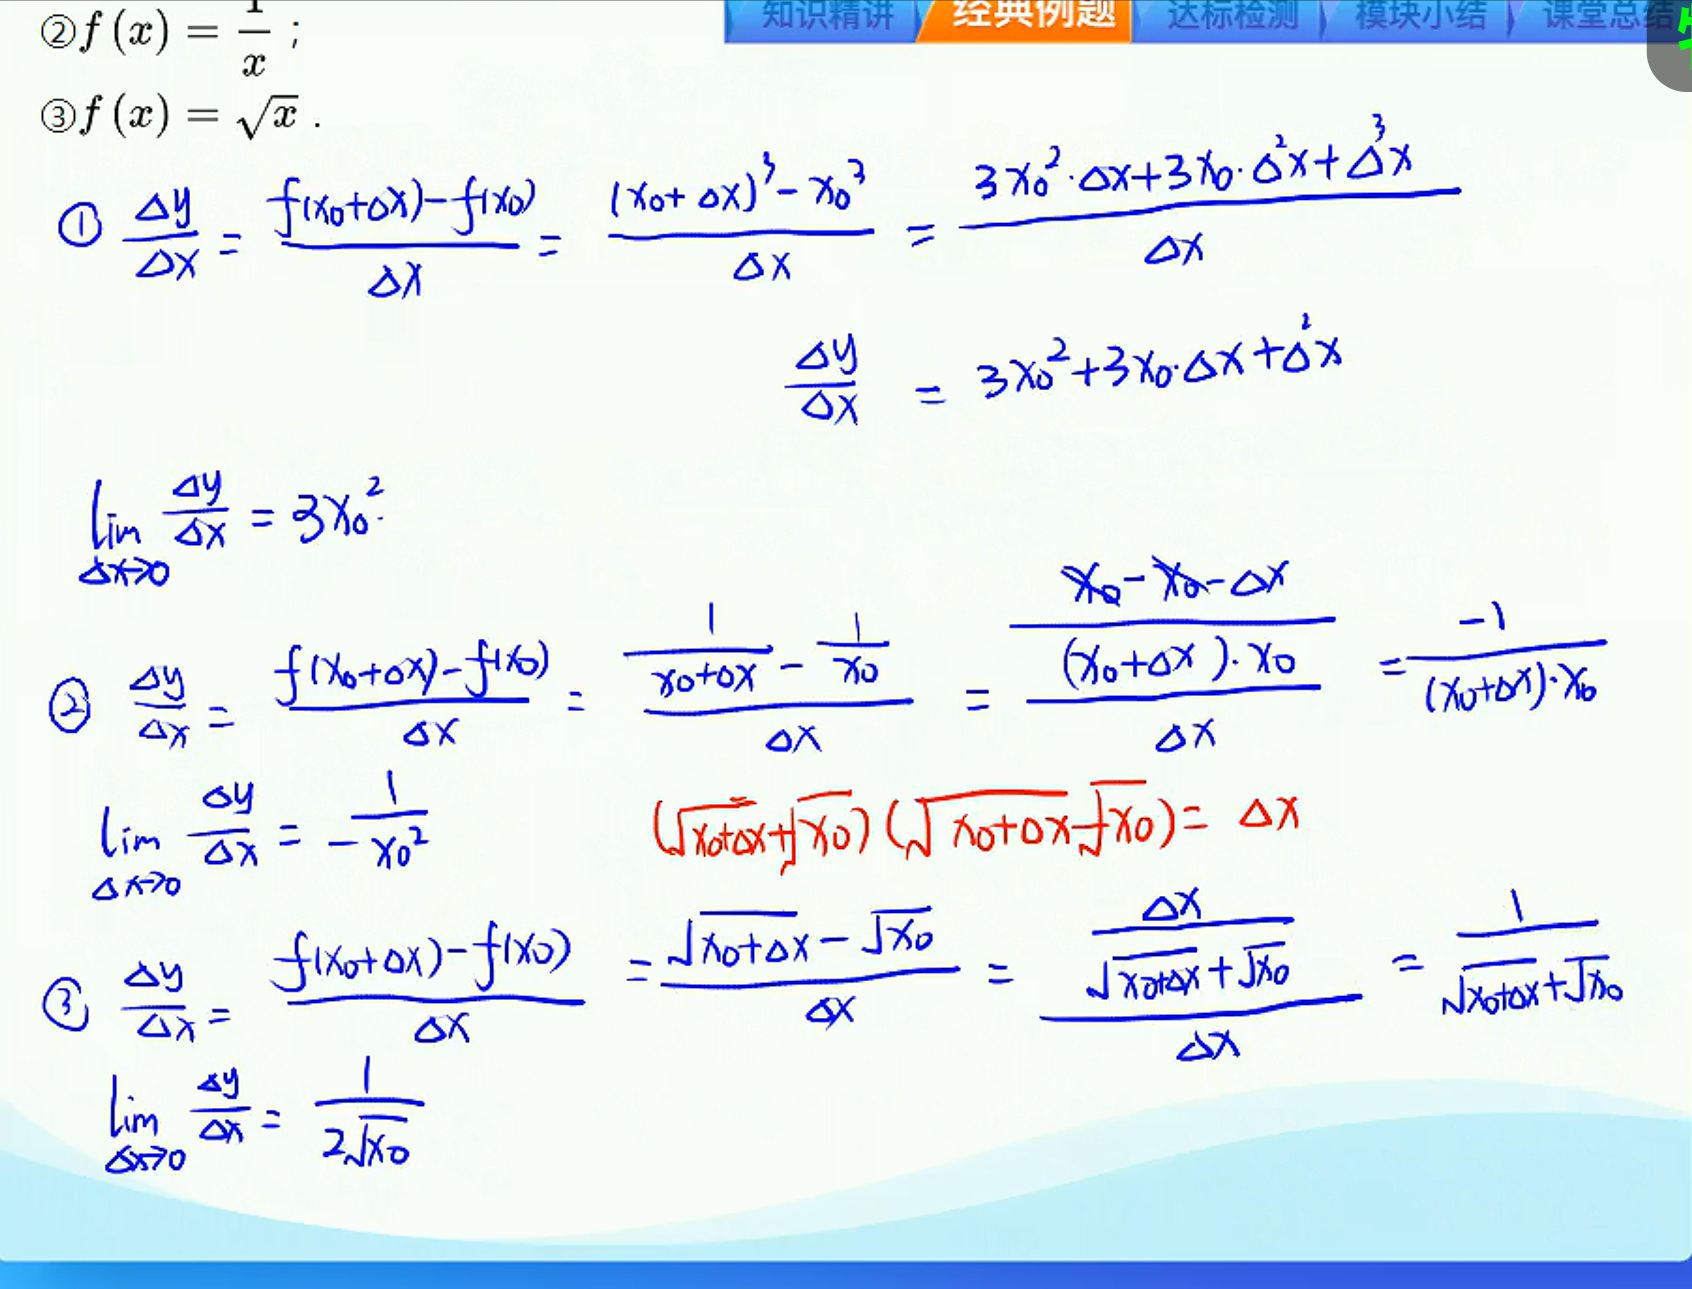 知识精讲 经典例题 达标检测 模块小结 课堂总结
②f(x) = 1/x ;
③f(x) = √x .
① Δy/Δx = (f(x₀+Δx)-f(x₀))/Δx = ((x₀+Δx)³-x₀³)/Δx = (3x₀²·Δx+3x₀·Δ²x+Δ³x)/Δx
Δy/Δx = 3x₀²+3x₀·Δx+Δ²x
lim Δx→0 Δy/Δx = 3x₀².
② Δy/Δx = (f(x₀+Δx)-f(x₀))/Δx = (1/(x₀+Δx) - 1/x₀)/Δx = ((x₀-x₀-Δx)/((x₀+Δx)·x₀))/Δx = -1/((x₀+Δx)·x₀)
lim Δx→0 Δy/Δx = -1/x₀²
(√(x₀+Δx)+√x₀)(√(x₀+Δx)-√x₀) = Δx
③ Δy/Δx = (f(x₀+Δx)-f(x₀))/Δx = (√(x₀+Δx)-√x₀)/Δx = (Δx/(√(x₀+Δx)+√x₀))/Δx = 1/(√(x₀+Δx)+√x₀)
lim Δx→0 Δy/Δx = 1/(2√x₀)